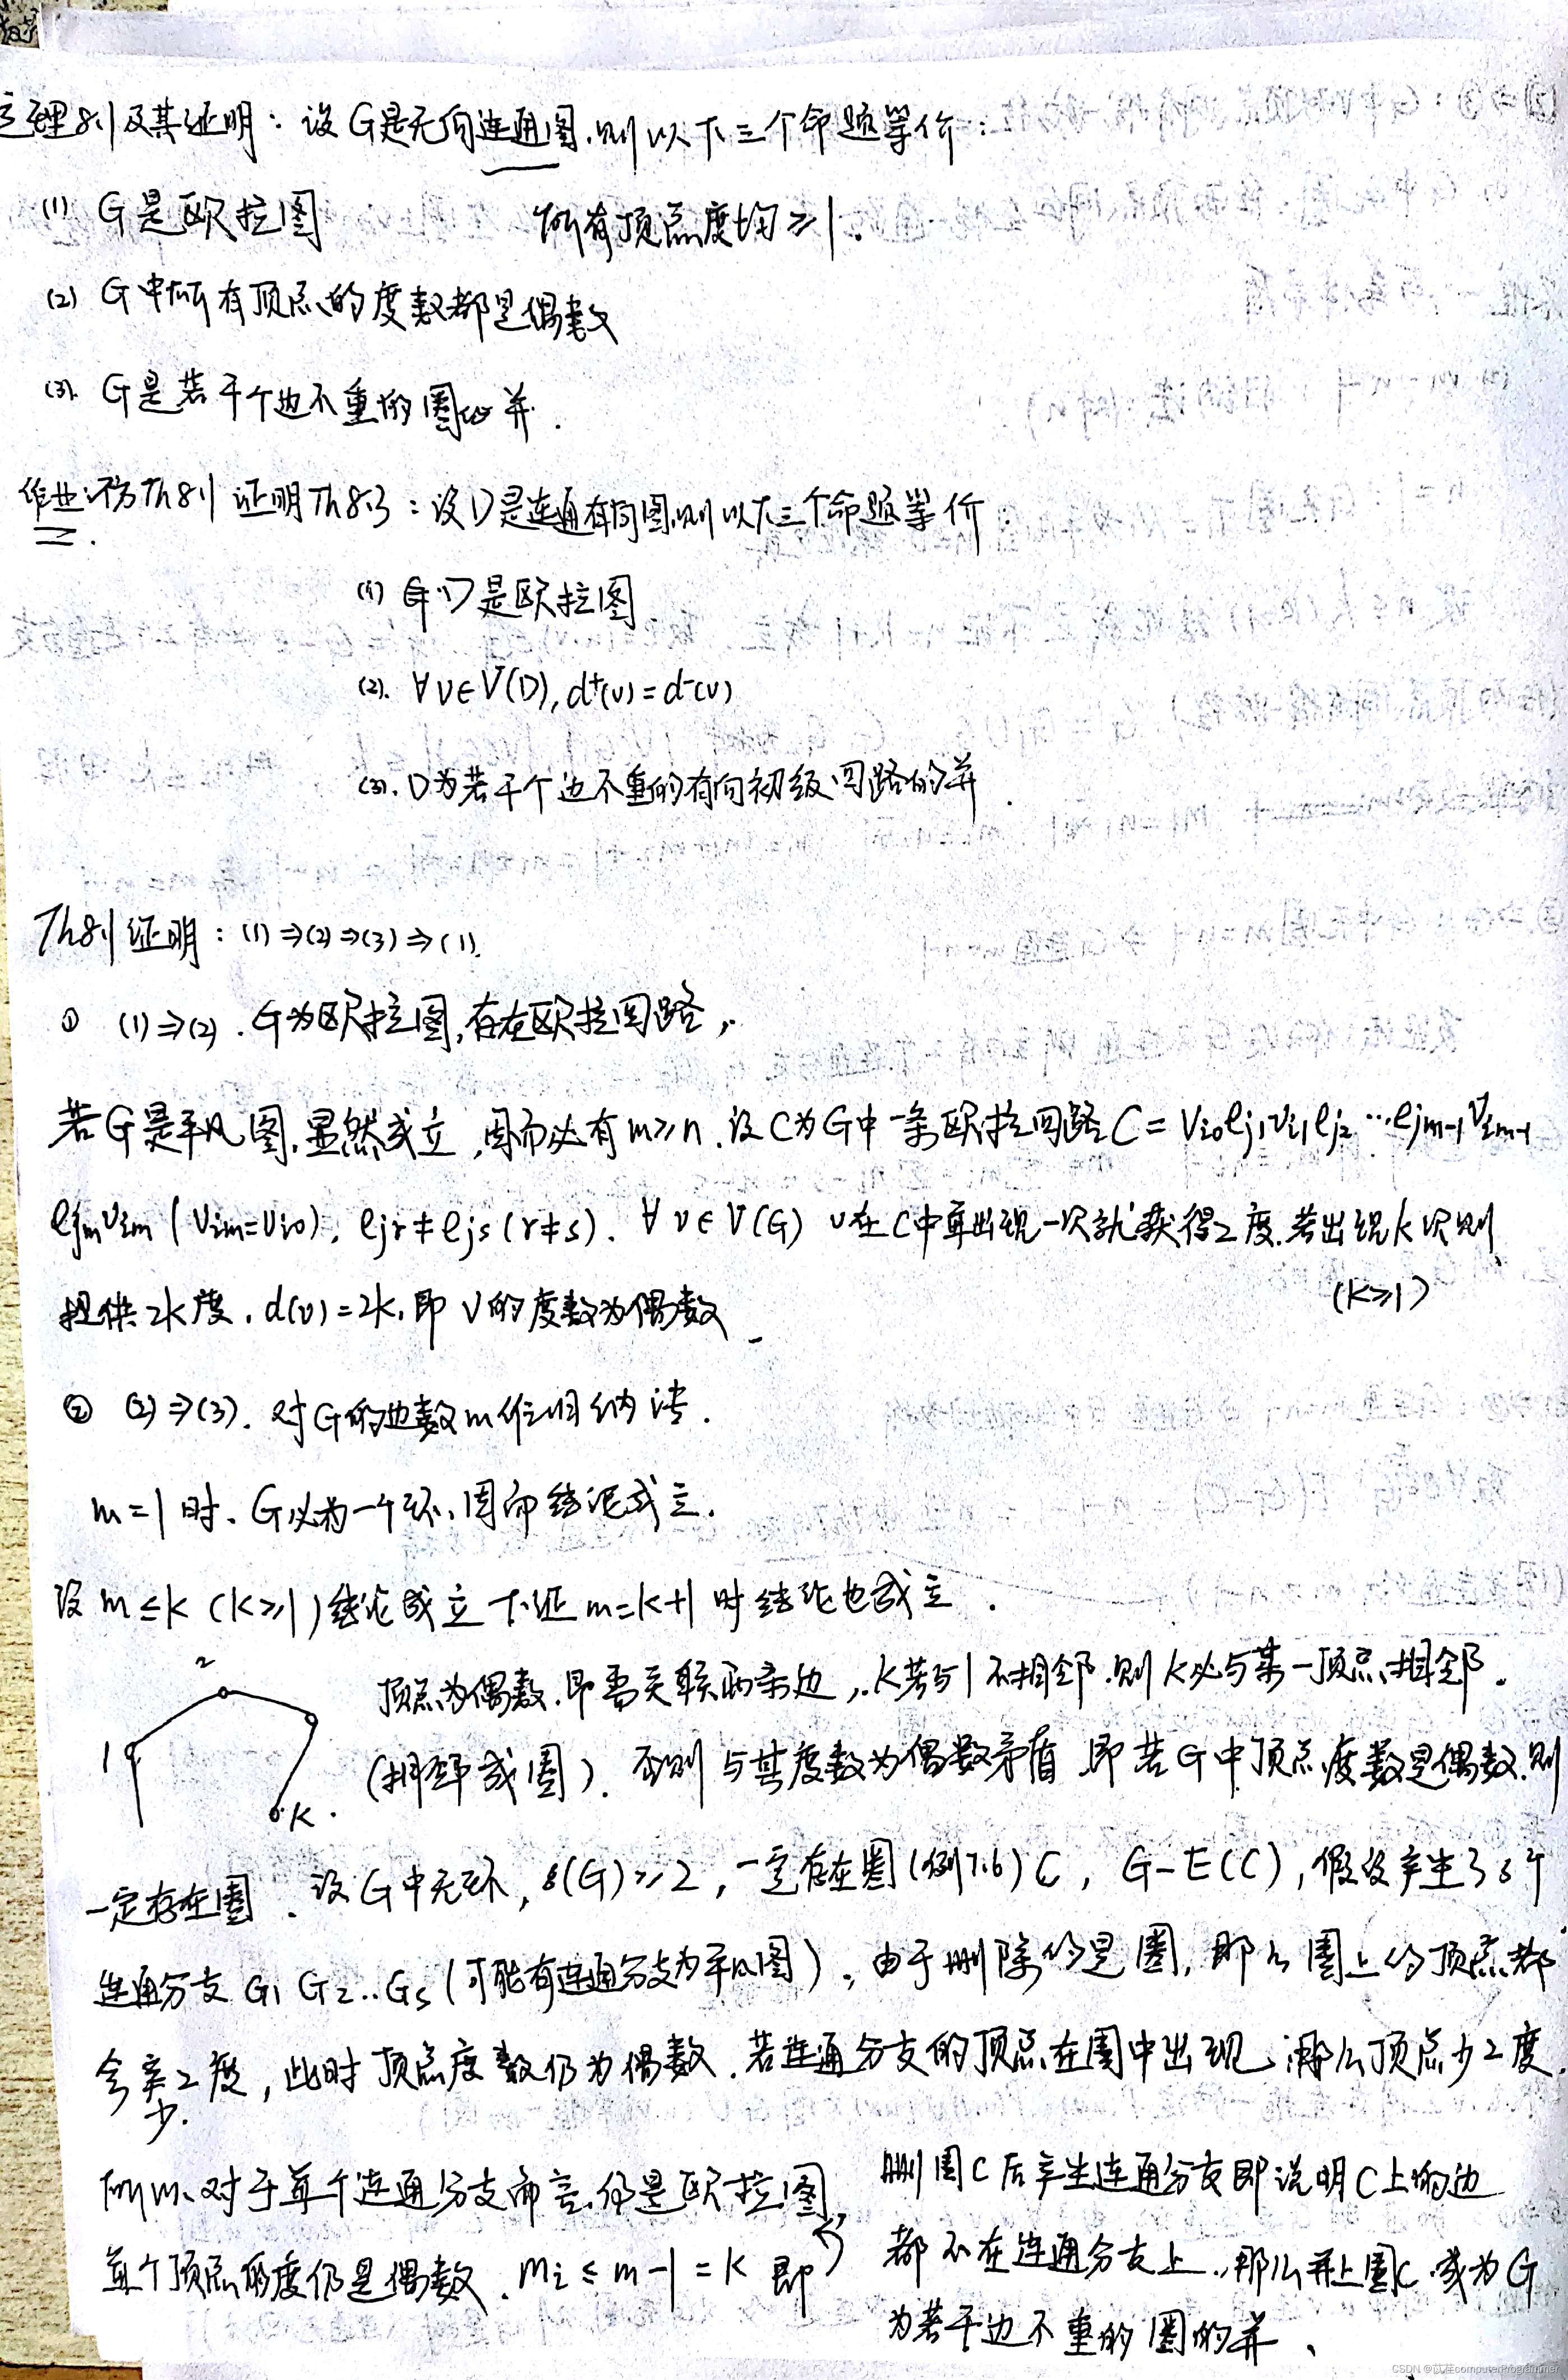 定理8.1及其证明：设G是无向连通图.则以下三个命题等价：
(1) G是欧拉图 所有顶点度均≥1.
(2) G中所有顶点的度数都是偶数
(3). G是若干个边不重的圈的并.
作业:仿Th8.1 证明Th8.3：设D是连通有向图,则以下三个命题等价
(1) D是欧拉图
(2). ∀v∈V(D), d⁺(v)=d⁻(v)
(3). D为若干个边不重的有向初级回路的并.
Th8.1证明：(1)⇒(2)⇒(3)⇒(1).
① (1)⇒(2). G为欧拉图,存在欧拉回路,
若G是平凡图,显然成立,因而必有m≥n.设C为G中一条欧拉回路C=Vi0ej1Vi1ej2…ejm-1Vim-1
ejmVim (Vim=Vi0), ejr≠ejs(r≠s). ∀v∈V(G) v在C中每出现一次就获得2度.若出现k次则
(k≥1)
提供2k度.d(v)=2k,即V的度数为偶数
② (2)⇒(3). 对G的边数m作归纳法.
m=1时、G必为一个环,因而结论成立.
设m≤k (k≥1)结论成立 下证m=k+1时结论也成立.
2
顶点为偶数.即需关联两条边,.k若与1不相邻.则k必与某一顶点相邻.
1
(相邻成圈).否则与其度数为偶数矛盾 即若G中顶点度数是偶数.则
k.
一定存在圈.设G中无环,δ(G)≥2,一定存在圈(例7.6)C, G-E(C),假设产生了s个
连通分支 G1 G2..Gs(可能有连通分支为平凡图),由于删除的是圈,那么圈上的顶点都
会 2度,此时顶点度数仍为偶数.若连通分支的顶点在圈中出现,那么顶点少2度.
少.
所以、对于每个连通分支而言.仍是欧拉图 删圈C后产生连通分支即说明C上的边
每个顶点的度仍是偶数.mi≤m-1=k 即 都不在连通分支上.,那么并上圈C.成为G
为若干边不重的圈的并、
CSDN @苡荏computerProgram